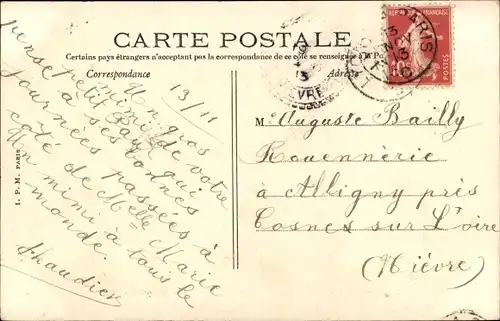 CARTE POSTALE
Certains pays étrangers n'acceptant pas la correspondance de ce côté se renseigner à la Poste
Correspondance
Adresse
PARIS
13
13
RÉPUBLIQUE FRANÇAISE
10
POSTES
13/11
Un gros
mimi de votre
petit Pau qui
pense à ses bonnes
journées passées à
côté de Melle Marie
Un mimi à tous le
monde.
I. P. M. PARIS
M. Auguste Bailly
Rouennerie
à Alligny près
Cosne sur Loire
(Nièvre)